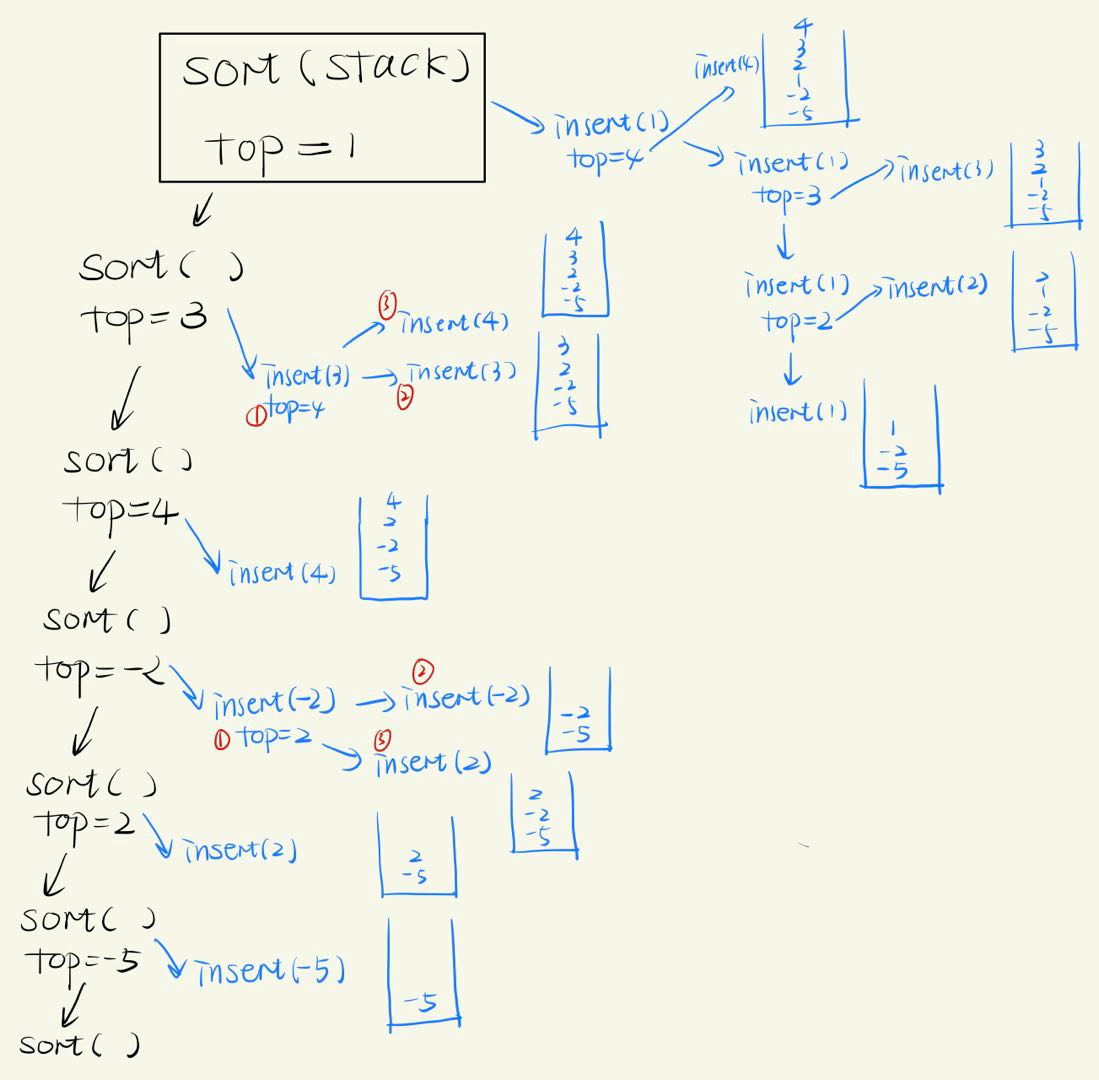 sort (stack)
top = 1
insert(1)
top=4
insert(4)
4
3
2
1
-2
-5
insert(1)
top=3
insert(3)
3
2
1
-2
-5
insert(1)
top=2
insert(2)
2
1
-2
-5
insert(1)
1
-2
-5
sort( )
top=3
insert(3)
① top=4
③
insert(4)
4
3
2
-2
-5
insert(3)
②
3
2
-2
-5
sort ( )
top=4
insert(4)
4
2
-2
-5
sort ( )
top=-2
insert(-2)
① top=2
②
insert(-2)
-2
-5
③
insert(2)
2
-2
-5
sort( )
top=2
insert(2)
2
-5
sort( )
top=-5
insert(-5)
-5
sort( )